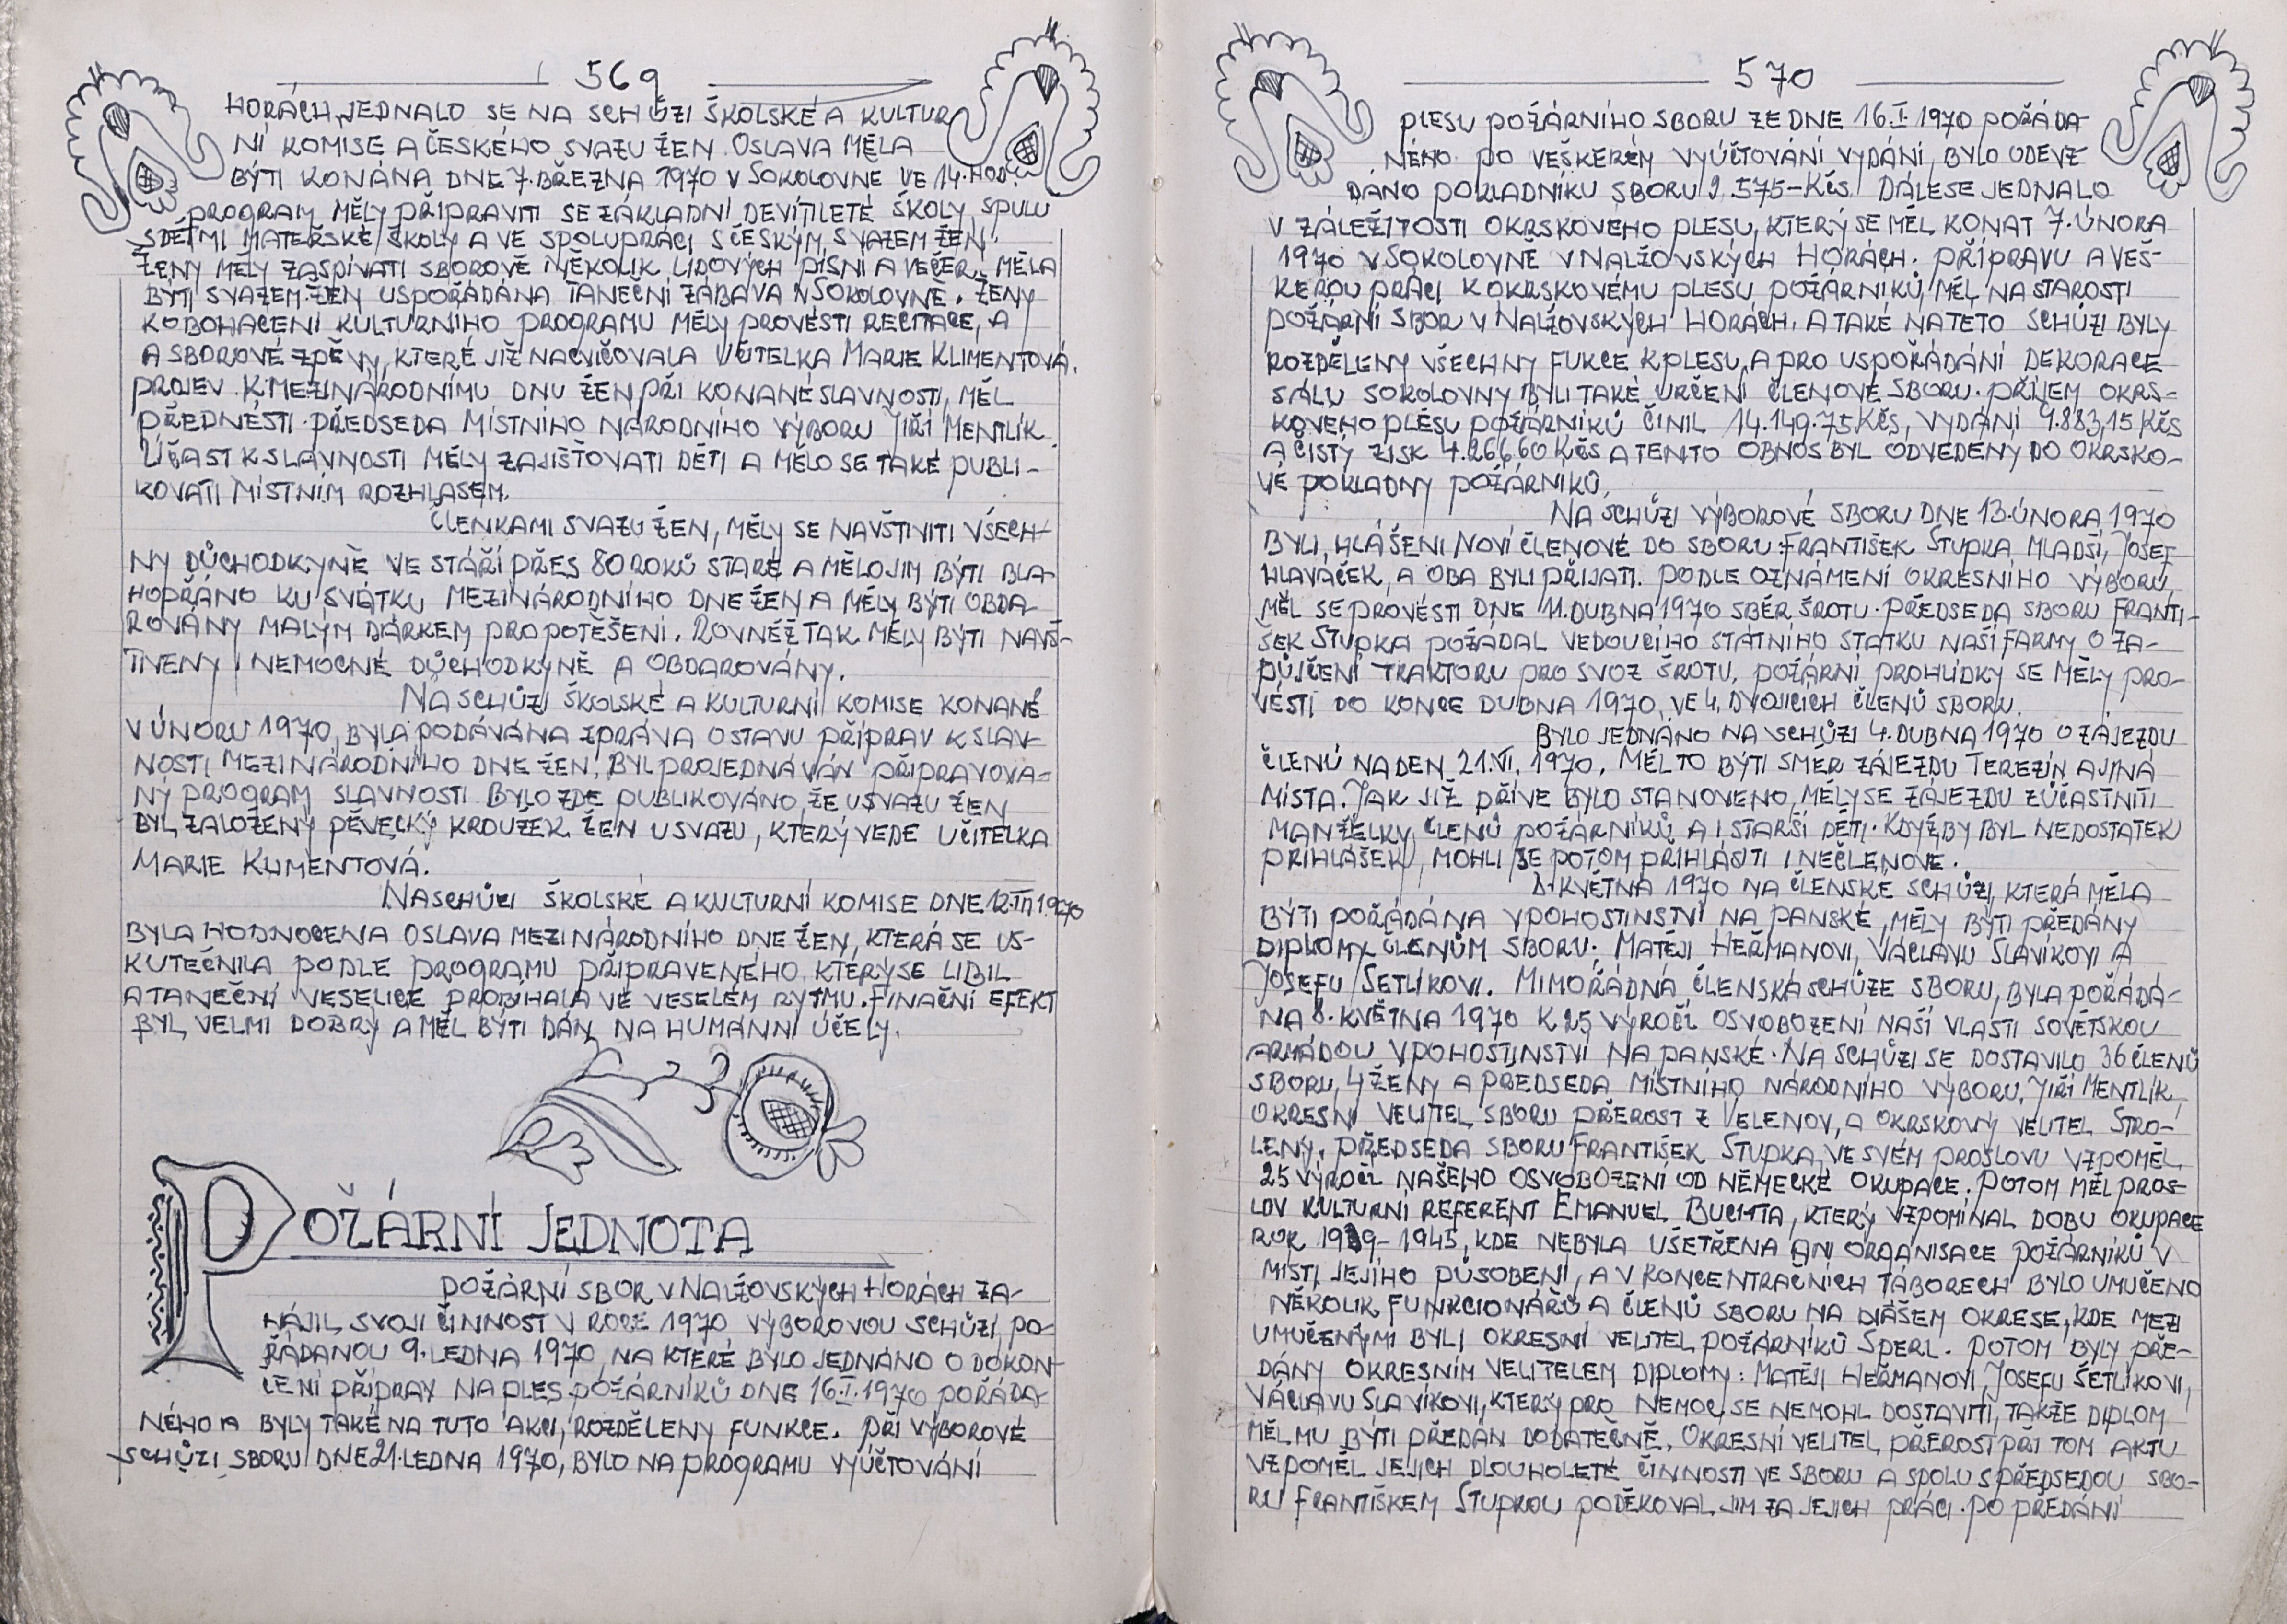 569
HORÁCH, JEDNALO SE NA SCHŮZI ŠKOLSKÉ A KULTUR
NÍ KOMISE A ČESKÉHO SVAZU ŽEN. OSLAVA MĚLA
BÝTI KONÁNA DNE 7. BŘEZNA 1970 V SOKOLOVNE VE 14. HOD.
PROGRAM MĚLY PŘIPRAVITI SE ZÁKLADNÍ DEVÍTILETÉ ŠKOLY, SPULU
S DĚTMI MATEŘSKÉ ŠKOLY A VE SPOLUPRÁCI S ČESKÝM SVAZEM ŽEN.
ŽENY MĚLY ZASPÍVATI SBOROVĚ NĚKOLIK LIDOVÝCH PÍSNÍ A VEČER MĚLA
BÝTI SVAZEM ŽEN USPOŘÁDÁNA TANEČNÍ ZÁBAVA V SOKOLOVNĚ. ŽENY
K OBOHACENÍ KULTURNÍHO PROGRAMU MĚLY PROVÉSTI RECITACE, A
A SBOROVÉ ZPĚVY, KTERÉ JIŽ NACVIČOVALA UČITELKA MARIE KLIMENTOVÁ.
PROJEV K MEZINÁRODNÍMU DNU ŽEN PŘI KONANÉ SLAVNOSTI, MĚL
PŘEDNÉSTI PŘEDSEDA MÍSTNÍHO NÁRODNÍHO VÝBORU JIŘÍ MENTLÍK.
ÚČAST K SLAVNOSTI MĚLY ZAJIŠŤOVATI DĚTI A MĚLO SE TAKÉ PUBLI-
KOVATI MÍSTNÍM ROZHLASEM.
ČLENKAMI SVAZU ŽEN, MĚLY SE NAVŠTIVITI VŠECH-
NY DŮCHODKYNĚ VE STÁŘÍ PŘES 80 ROKŮ STARÉ A MĚLO JIM BÝTI BLA-
HOPŘÁNO KU SVÁTKU MEZINÁRODNÍHO DNE ŽEN A MĚLY BÝTI OBDA-
ROVÁNY MALÝM DÁRKEM PRO POTĚŠENÍ. ROVNĚŽ TAK MĚLY BÝTI NAVŠ-
TIVENY I NEMOCNÉ DŮCHODKYNĚ A OBDAROVÁNY.
NA SCHŮZI ŠKOLSKÉ A KULTURNÍ KOMISE KONANÉ
V ÚNORU 1970, BYLA PODÁVÁNA ZPRÁVA O STAVU PŘÍPRAV K SLAV-
NOSTI MEZINÁRODNÍHO DNE ŽEN. BYL PROJEDNÁVÁN PŘIPRAVOVA-
NÝ PROGRAM SLAVNOSTI. BYLO ZDE PUBLIKOVÁNO, ŽE U SVAZU ŽEN
BYL ZALOŽENÝ PĚVECKÝ KROUŽEK ŽEN U SVAZU, KTERÝ VEDE UČITELKA
MARIE KLIMENTOVÁ.
NA SCHŮZI ŠKOLSKÉ A KULTURNÍ KOMISE DNE 12.III 1970
BYLA HODNOCENA OSLAVA MEZINÁRODNÍHO DNE ŽEN, KTERÁ SE US-
KUTEČNILA PODLE PROGRAMU PŘIPRAVENÉHO KTERÝ SE LÍBIL
A TANEČNÍ VESELICE PROBÍHALA VE VESELÉM RYTMU. FINAČNÍ EFEKT
BYL VELMI DOBRÝ A MĚL BÝTI DÁN NA HUMÁNNÍ ÚČELY.
POŽÁRNÍ JEDNOTA
POŽÁRNÍ SBOR V NALŽOVSKÝCH HORÁCH ZA-
HÁJIL SVOJI ČINNOST V ROCE 1970 VÝBOROVOU SCHŮZÍ, PO-
ŘÁDANOU 9. LEDNA 1970, NA KTERÉ BYLO JEDNÁNO O DOKON-
ČENÍ PŘÍPRAV NA PLES POŽÁRNÍKŮ DNE 16.I.1970 POŘÁDA-
NÉHO A BYLY TAKÉ NA TUTO AKCI, ROZDĚLENY FUNKCE. PŘI VÝBOROVÉ
SCHŮZI SBORU DNE 21. LEDNA 1970, BYLO NA PROGRAMU VYÚČTOVÁNÍ
570
PLESU POŽÁRNÍHO SBORU ZE DNE 16.I.1970 POŘÁDA-
NÉHO. PO VEŠKERÉM VYÚČTOVÁNÍ VYDÁNÍ, BYLO ODEVZ-
DÁNO POKLADNÍKU SBORU 2.575-KČS. DÁLE SE JEDNALO
V ZÁLEŽITOSTI OKRSKOVÉHO PLESU, KTERÝ SE MĚL KONAT 7. ÚNORA
1970 V SOKOLOVNĚ V NALŽOVSKÝCH HORÁCH. PŘÍPRAVU A VEŠ-
KEROU PRÁCI K OKRSKOVÉMU PLESU POŽÁRNÍKŮ, MĚL NA STAROSTI
POŽÁRNÍ SBOR V NALŽOVSKÝCH HORÁCH. A TAKÉ NA TÉTO SCHŮZI BYLY
ROZDĚLENY VŠECHNY FUKCE K PLESU, A PRO USPOŘÁDÁNÍ DEKORACE
SÁLU SOKOLOVNY BYLI TAKÉ URČENI ČLENOVÉ SBORU. PŘÍJEM OKRS-
KOVÉHO PLESU POŽÁRNÍKŮ ČINIL 14.149.75 KČS, VYDÁNÍ 9.883,15 KČS
A ČISTÝ ZISK 4.266,60 KČS A TENTO OBNOS BYL ODVEDENÝ DO OKRSKO-
VÉ POKLADNY POŽÁRNÍKŮ.
NA SCHŮZI VÝBOROVÉ SBORU DNE 13. ÚNORA 1970
BYLI HLÁŠENI NOVÍ ČLENOVÉ DO SBORU: FRANTIŠEK STUPKA MLADŠÍ, JOSEF
HLAVÁČEK, A OBA BYLI PŘIJATI. PODLE OZNÁMENÍ OKRESNÍHO VÝBORU,
MĚL SE PROVÉSTI DNE 11. DUBNA 1970 SBĚR ŠROTU. PŘEDSEDA SBORU FRANTI-
ŠEK STUPKA POŽÁDAL VEDOUCÍHO STÁTNÍHO STATKU NAŠÍ FARMY O ZA-
PŮJČENÍ TRAKTORU PRO SVOZ ŠROTU. POŽÁRNÍ PROHLÍDKY SE MĚLY PRO-
VÉSTI DO KONCE DUBNA 1970, VE 4. DVOJICÍCH ČLENŮ SBORU.
BYLO JEDNÁNO NA SCHŮZI 4. DUBNA 1970 O ZÁJEZDU
ČLENŮ NA DEN 21.VI. 1970. MĚL TO BÝTI SMĚR ZÁJEZDU TEREZÍN A JINÁ
MÍSTA. JAK JIŽ DŘÍVE BYLO STANOVENO, MĚLY SE ZÁJEZDU ZÚČASTNITI
MANŽELKY ČLENŮ POŽÁRNÍKŮ A I STARŠÍ DĚTI. KDYŽ BY BYL NEDOSTATEK
PŘIHLÁŠEK, MOHLI SE POTOM PŘIHLÁSITI I NEČLENOVÉ.
8. KVĚTNA 1970 NA ČLENSKÉ SCHŮZI, KTERÁ MĚLA
BÝTI POŘÁDÁNA V POHOSTINSTVÍ NA PANSKÉ, MĚLY BÝTI PŘEDÁNY
DIPLOMY ČLENŮM SBORU: MATĚJI HEŘMANOVI, VÁCLAVU SLAVÍKOVI A
JOSEFU ŠETLÍKOVI. MIMOŘÁDNÁ ČLENSKÁ SCHŮZE SBORU, BYLA POŘÁDÁ-
NA 8. KVĚTNA 1970 K 25 VÝROČÍ OSVOBOZENÍ NAŠÍ VLASTI SOVĚTSKOU
ARMÁDOU V POHOSTINSTVÍ NA PANSKÉ. NA SCHŮZI SE DOSTAVILO 36 ČLENŮ
SBORU, 4 ŽENY A PŘEDSEDA MÍSTNÍHO NÁRODNÍHO VÝBORU, JIŘÍ MENTLÍK,
OKRESNÍ VELITEL SBORU PŘEROST Z VELENOV, A OKRSKOVÝ VELITEL STRO-
LENÝ. PŘEDSEDA SBORU FRANTIŠEK STUPKA, VE SVÉM PROSLOVU VZPOMĚL
25 VÝROČÍ NAŠEHO OSVOBOZENÍ OD NĚMECKÉ OKUPACE. POTOM MĚL PROS-
LOV KULTURNÍ REFERENT EMANUEL BUCHTA, KTERÝ VZPOMÍNAL DOBU OKUPACE
ROK 1939-1945, KDE NEBYLA UŠETŘENA ANI ORGANISACE POŽÁRNÍKŮ V
MÍSTĚ JEJÍHO PŮSOBENÍ, A V KONCENTRAČNÍCH TÁBORECH BYLO UMUČENO
NĚKOLIK FUNKCIONÁŘŮ A ČLENŮ SBORU NA NAŠEM OKRESE, KDE MEZI
UMUČENÝMI BYLI OKRESNÍ VELITEL POŽÁRNÍKŮ ŠPERL. POTOM BYLY PŘE-
DÁNY OKRESNÍM VELITELEM DIPLOMY: MATĚJI HEŘMANOVI, JOSEFU ŠETLÍKOVI,
VÁCLAVU SLAVÍKOVI, KTERÝ PRO NEMOC SE NEMOHL DOSTAVITI, TAKŽE DIPLOM
MĚL MU BÝTI PŘEDÁN DODATEČNĚ. OKRESNÍ VELITEL PŘEROST PŘI TOM AKTU
VZPOMĚL JEJICH DLOUHOLETÉ ČINNOSTI VE SBORU A SPOLU S PŘEDSEDOU SBO-
RU FRANTIŠKEM STUPKOU PODĚKOVAL JIM ZA JEJICH PRÁCI. PO PŘEDÁNÍ